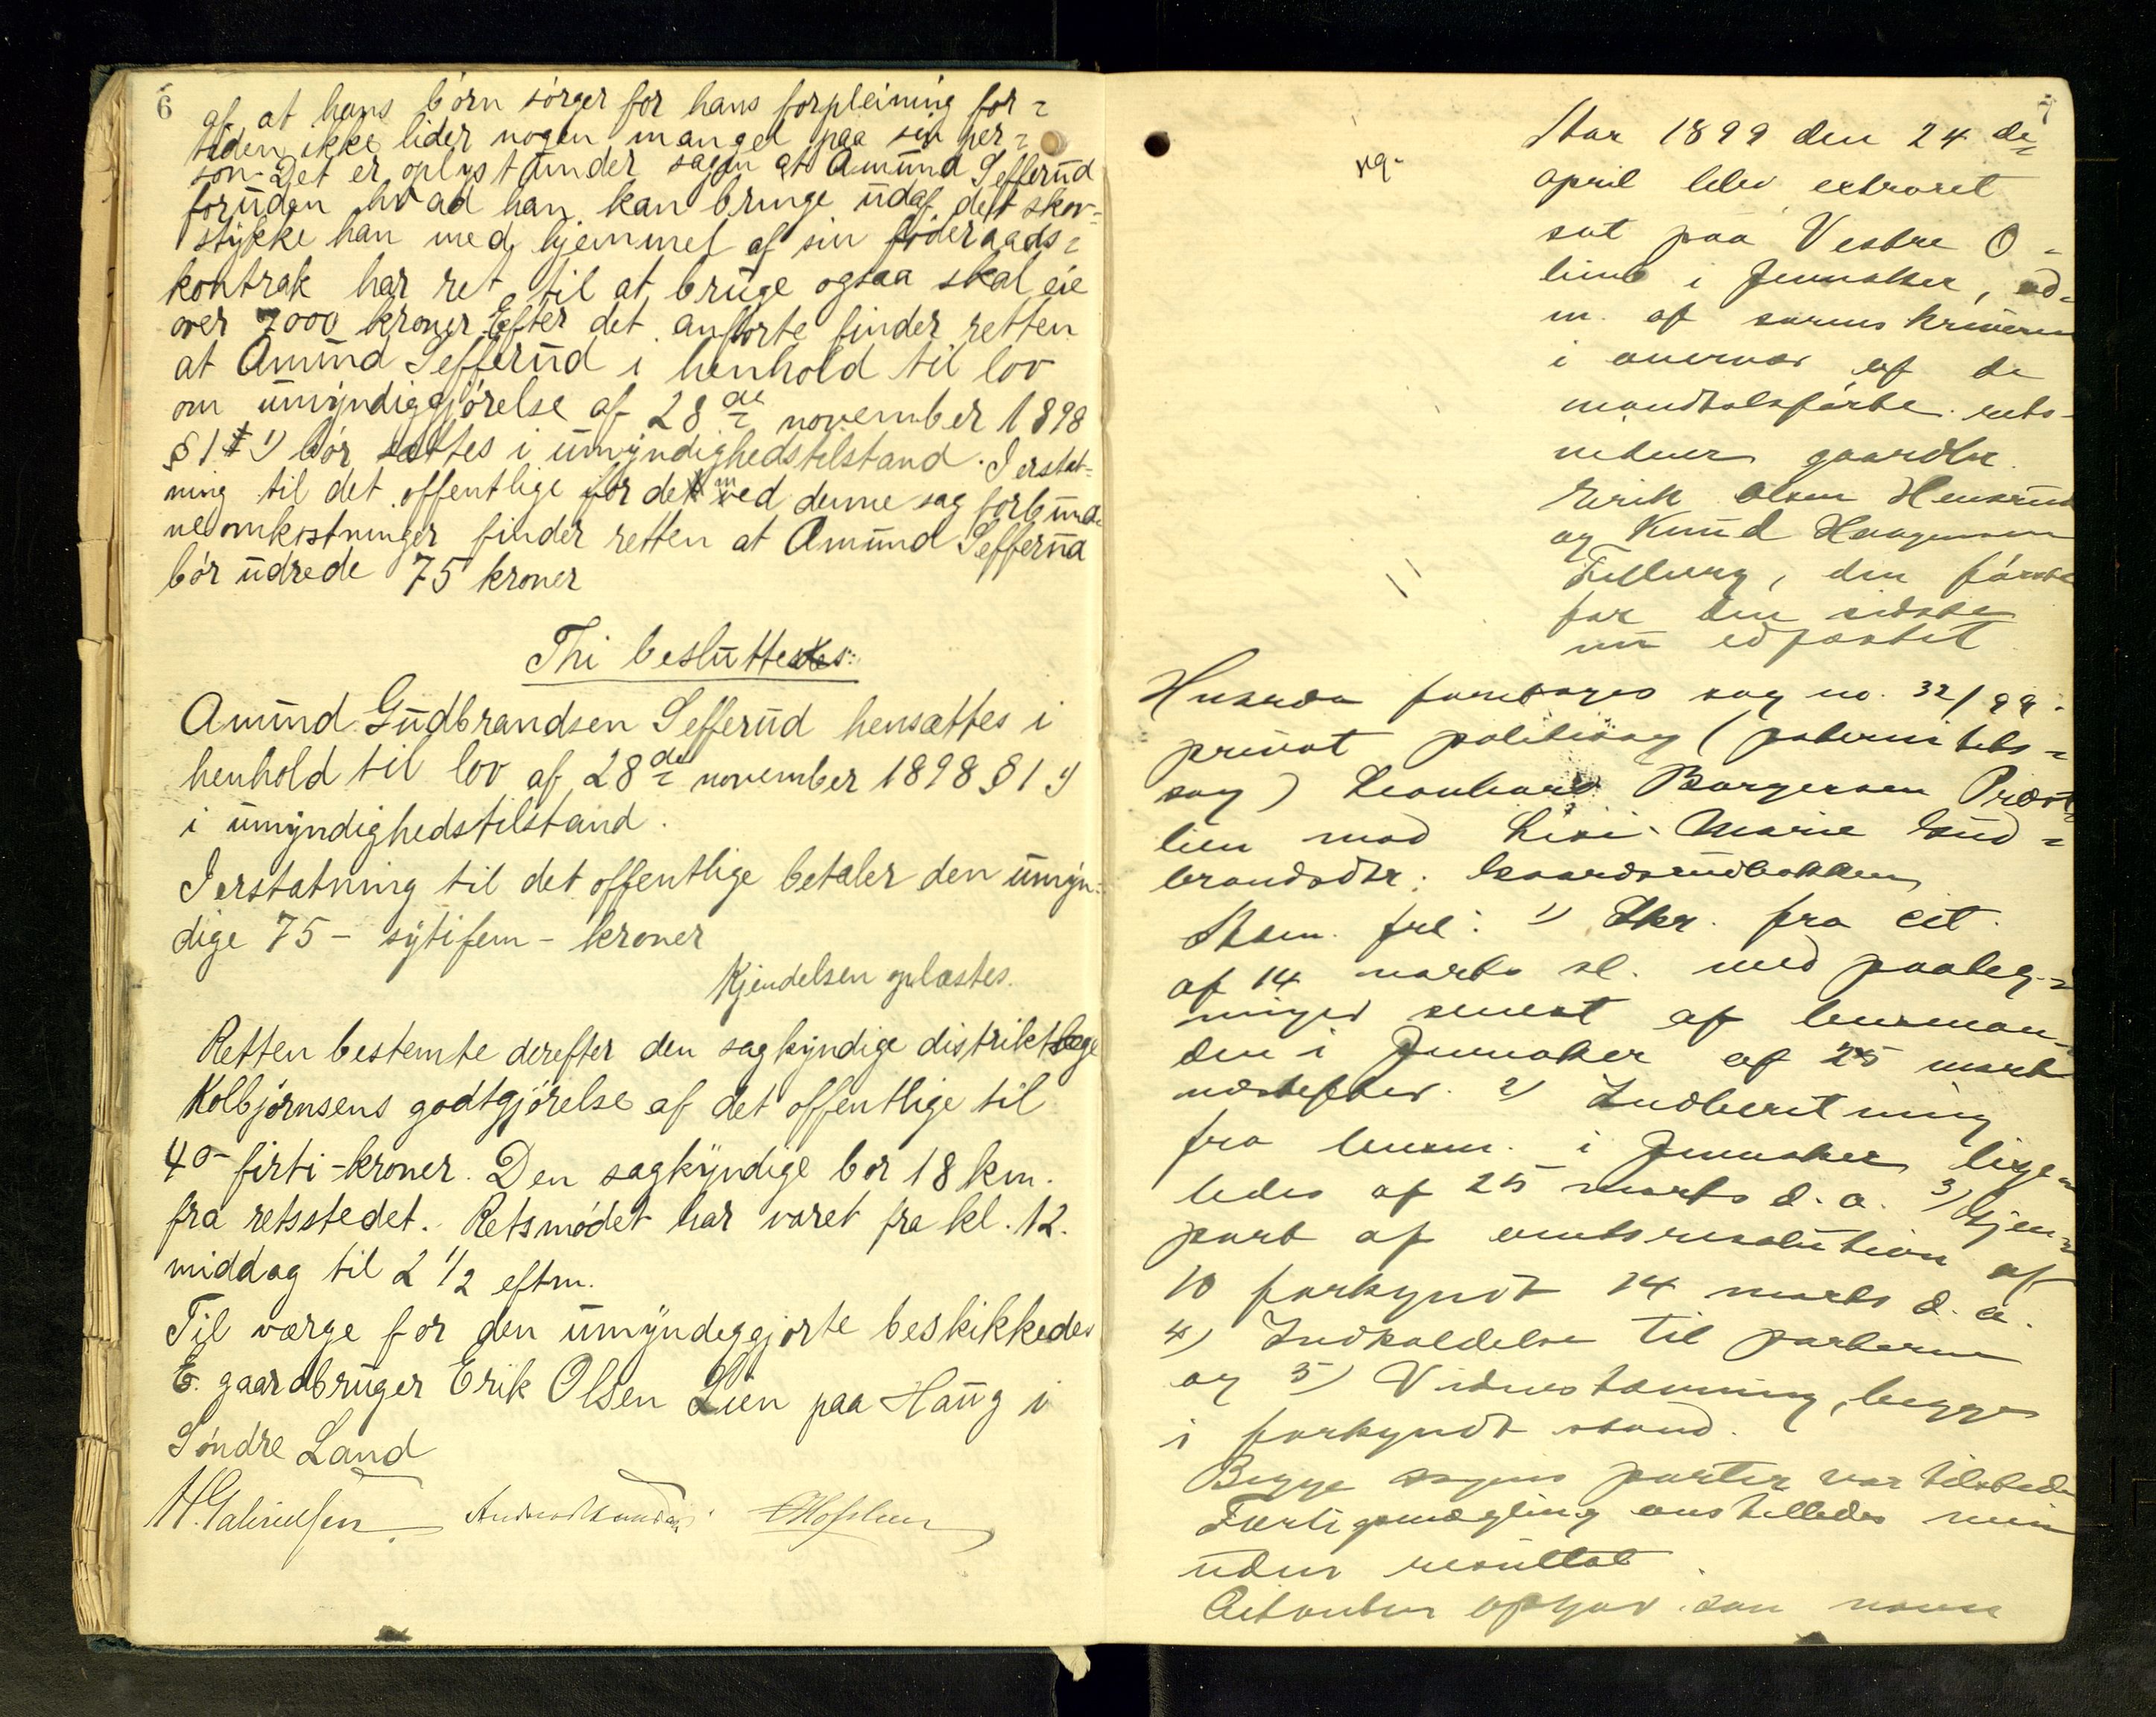 6
af at hans børn sørger for hans forpleining for=
tiden ikke lider nogen mangel paa sin per=
son. Det er oplyst under sagen at Amund Sefferud
foruden hvad han kan bringe udaf det skov=
stykke han med hjemmel af sin føderaads=
kontrak har ret til at bruge ogsaa skal eie
over 7000 kroner. Efter det anførte finder retten
at Amund Sefferud i henhold til lov
om umyndiggjørelse af 28de november 1898
§ 1 1) bør sættes i umyndighedstilstand. I erstat=
ning til det offentlige for de m ved denne sag forbund=
ne omkostninger finder retten at Amund Sefferud
bør udrede 75 kroner
Thi besluttes:
Amund Gudbrandsen Sefferud hensættes i
henhold til lov af 28de november 1898 § 1 1)
i umyndighedstilstand.
I erstatning til det offentlige betaler den umyn=
dige 75 - sytifem - kroner
Kjendelsen oplæstes.
Retten bestemte derefter den sagkyndige distriktslæge
Kolbjørnsens godtgjørelse af det offentlige til
40 - firti - kroner. Den sagkyndige bor 18 km.
fra retsstedet. Retsmødet har varet fra kl. 12.
middag til 2 1/2 eftm.
Til værge for den umyndeggjorte beskikkedes
E. gaardbruger Erik Olsen Lien paa Haug i
Søndre Land
H. Gabrielsen
7
Aar 1899 den 24 de
april blev extraret
sat paa Vestre O=
limb i Jevnaker, ad=
m. af sorenskriveren
i overvær af de
mandtalsførte rets=
vidner gaardbr.
Erik Olsen Hensrud
og Knud Haagensen
den første
for den sidste
nu edfæstet
Hvorda foretoges sag no. 32/99.
privat politisag (paternitets=
sag) Leonhard Borgersen Præst=
lien mod Lisi Marie Gud=
brandsdtr.
Skr. fra cit.
af 14 marts sl. med paateg=
ninger senest af lensman=
den i Jevnaker af 25 marts
næstefter. 2) Indberetning
fra lensm. i Jevnaker lige=
ledes af 25 marts d. a. 3) Gjen=
part af amtsresolution af
10 forkyndt 14 marts d. a.
4) Indkaldelse til parterne
og 5) Vidnestævning, begge
i forkyndt stand.
Begge sagens parter var tilstede
Forligsmægling anstilledes men
uden resultat.
Citanten opgav som navn